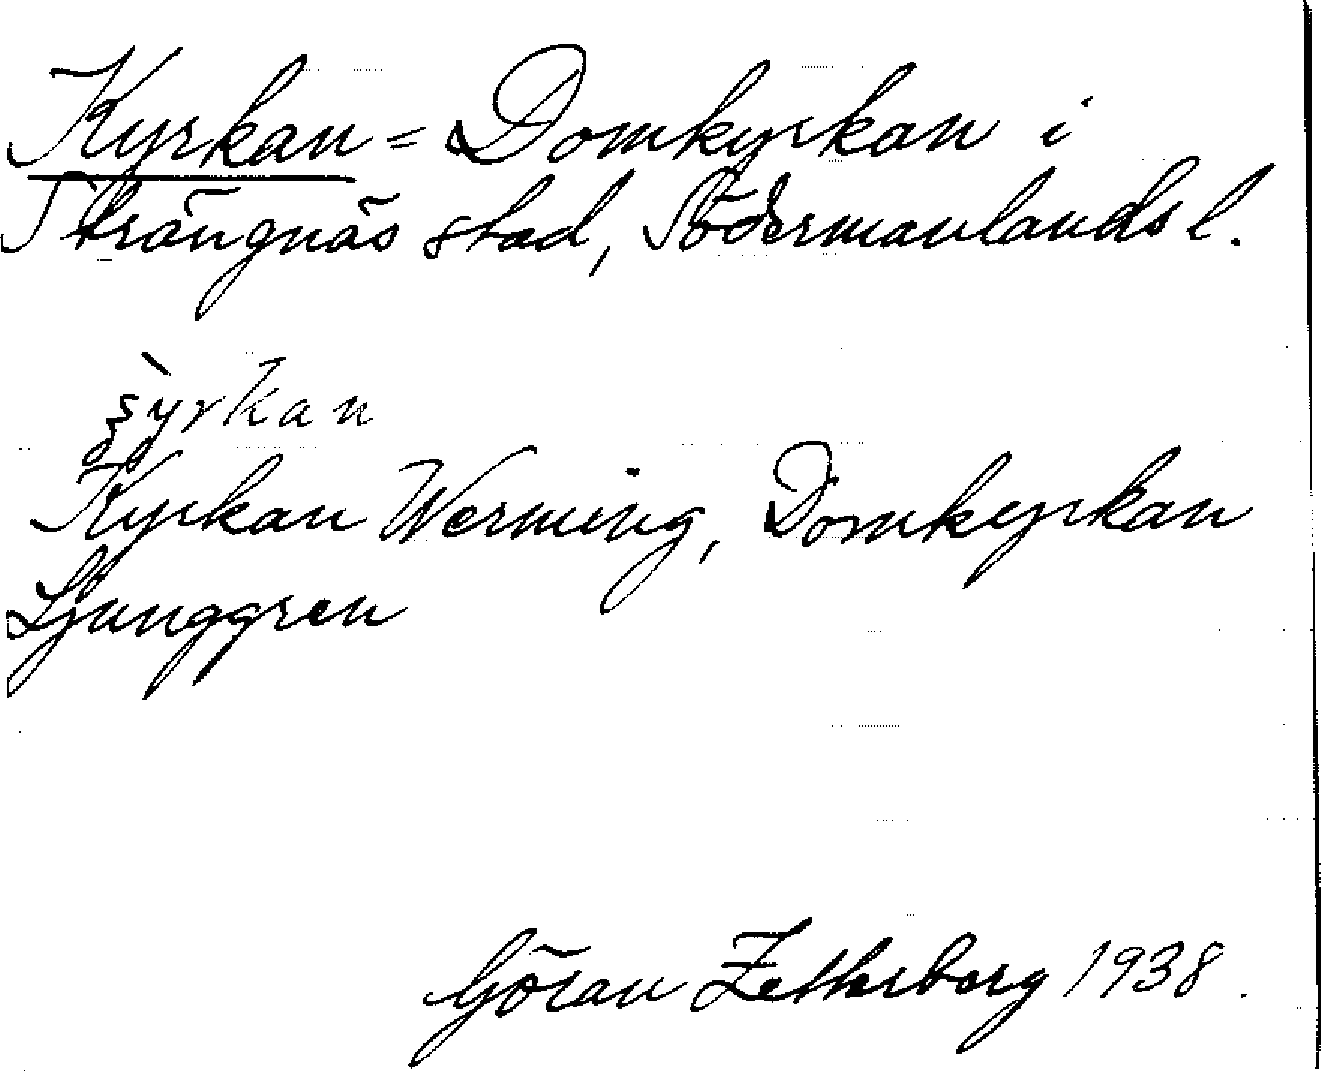 Kyrkan = Domkyrkan i
Strängnäs stad, Södermanlands l.
kyrkan
Kyrkan Werming, Domkyrkan
Ljunggren
Göran Zetterberg 1938.